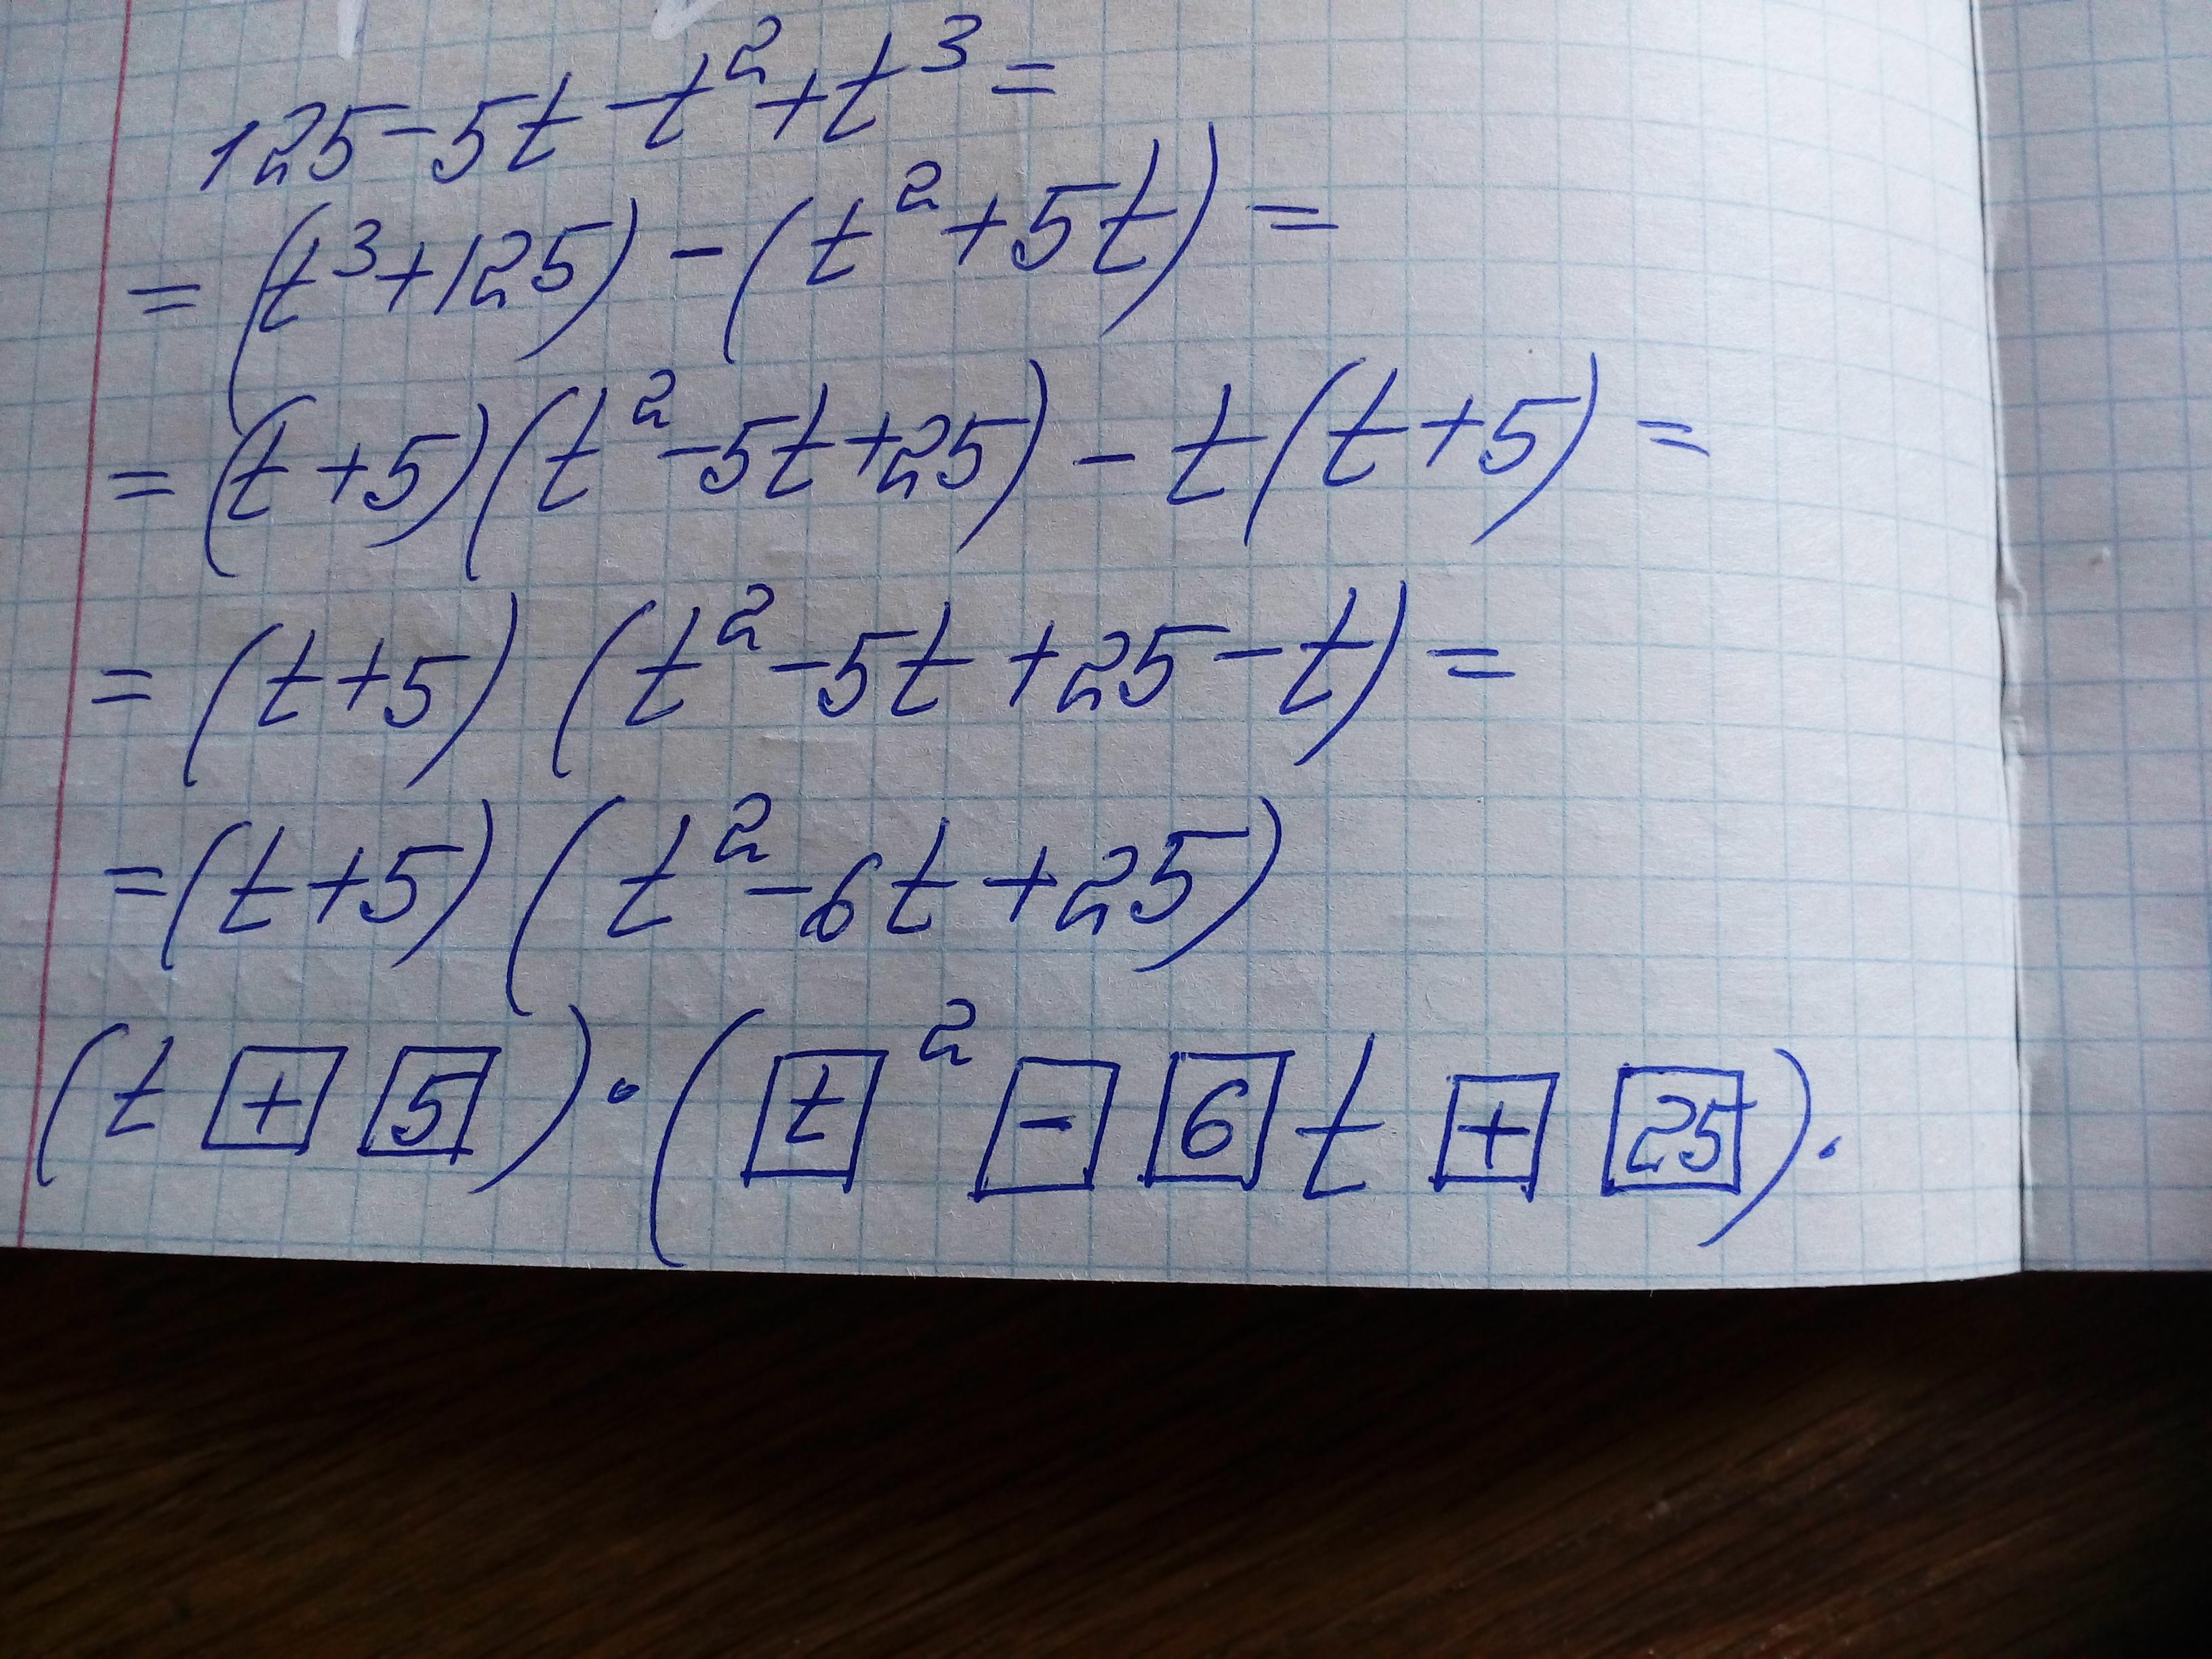 125-5t-t²+t³=
=(t³+125)-(t²+5t)=
=(t+5)(t²-5t+25)-t(t+5)=
=(t+5)(t²-5t+25-t)=
=(t+5)(t²-6t+25)
(t + 5)·(t² - 6t + 25).